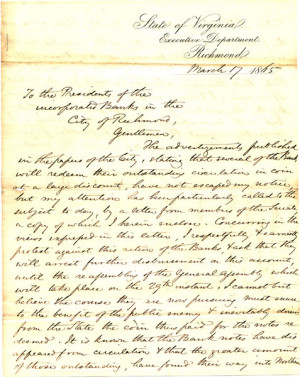 State of Virginia
Executive Department
Richmond
March 17 1865
To the Presidents of the
incorporated Banks in the
City of Richmond,
Gentlemen,
The advertizements published
in the papers of the City, stating that several of the Banks
will redeem their outstanding circulation in coin
at a large discount, have not escaped my notice,
but my attention has been particularly called to the
subject to day, by a letter from members of the Senate
a copy of which I herein enclose. Concurring in the
views expressed in this letter, I respectfully & earnestly
protest against this action of the Banks & ask that they
will arrest further disbursement on this account,
until the reassembling of the General Assembly which
will take place on the 29th instant. I cannot but
believe the course they are now pursuing must enure
to the benefit of the public enemy & inevitably drain
from the State the coin thus paid for the notes re
deemed. It is known that the Bank notes have dis
appeared from circulation & that the greater amount
of those outstanding, have found their way into Northern